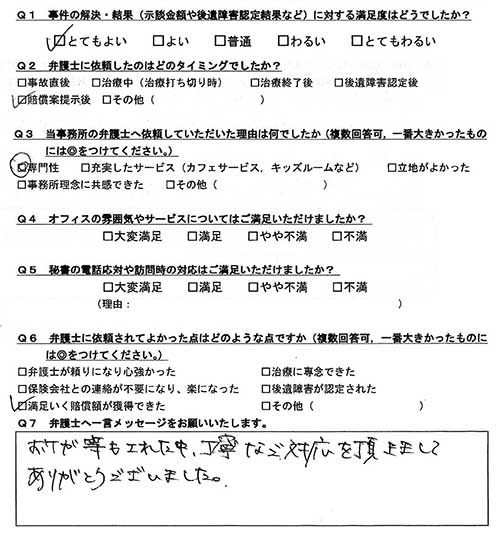 Q1 事件の解決・結果(示談金額や後遺障害認定結果など)に対する満足度はどうでしたか?
□とてもよい □よい □普通 □わるい □とてもわるい
Q2 弁護士に依頼したのはどのタイミングでしたか?
□事故直後 □治療中(治療打ち切り時) □治療終了後 □後遺障害認定後
□賠償案提示後 □その他( )
Q3 当事務所の弁護士へ依頼していただいた理由は何でしたか(複数回答可,一番大きかったもの
には◎をつけてください。)
□専門性 □充実したサービス(カフェサービス,キッズルームなど) □立地がよかった
□事務所理念に共感できた □その他( )
Q4 オフィスの雰囲気やサービスについてはご満足いただけましたか?
□大変満足 □満足 □やや不満 □不満
Q5 秘書の電話応対や訪問時の対応はご満足いただけましたか?
□大変満足 □満足 □やや不満 □不満
(理由: )
Q6 弁護士に依頼されてよかった点はどのような点ですか(複数回答可,一番大きかったものに
は◎をつけてください。)
□弁護士が頼りになり心強かった □治療に専念できた
□保険会社との連絡が不要になり、楽になった □後遺障害が認定された
□満足いく賠償額が獲得できた □その他( )
Q7 弁護士へ一言メッセージをお願いいたします。
中、丁寧なご対応を頂きまして
ありがとうございました。